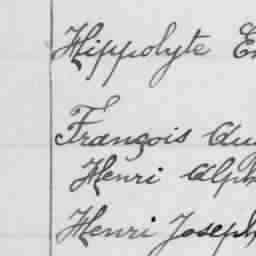 Hippolyte
François
Henri
Henri Joseph